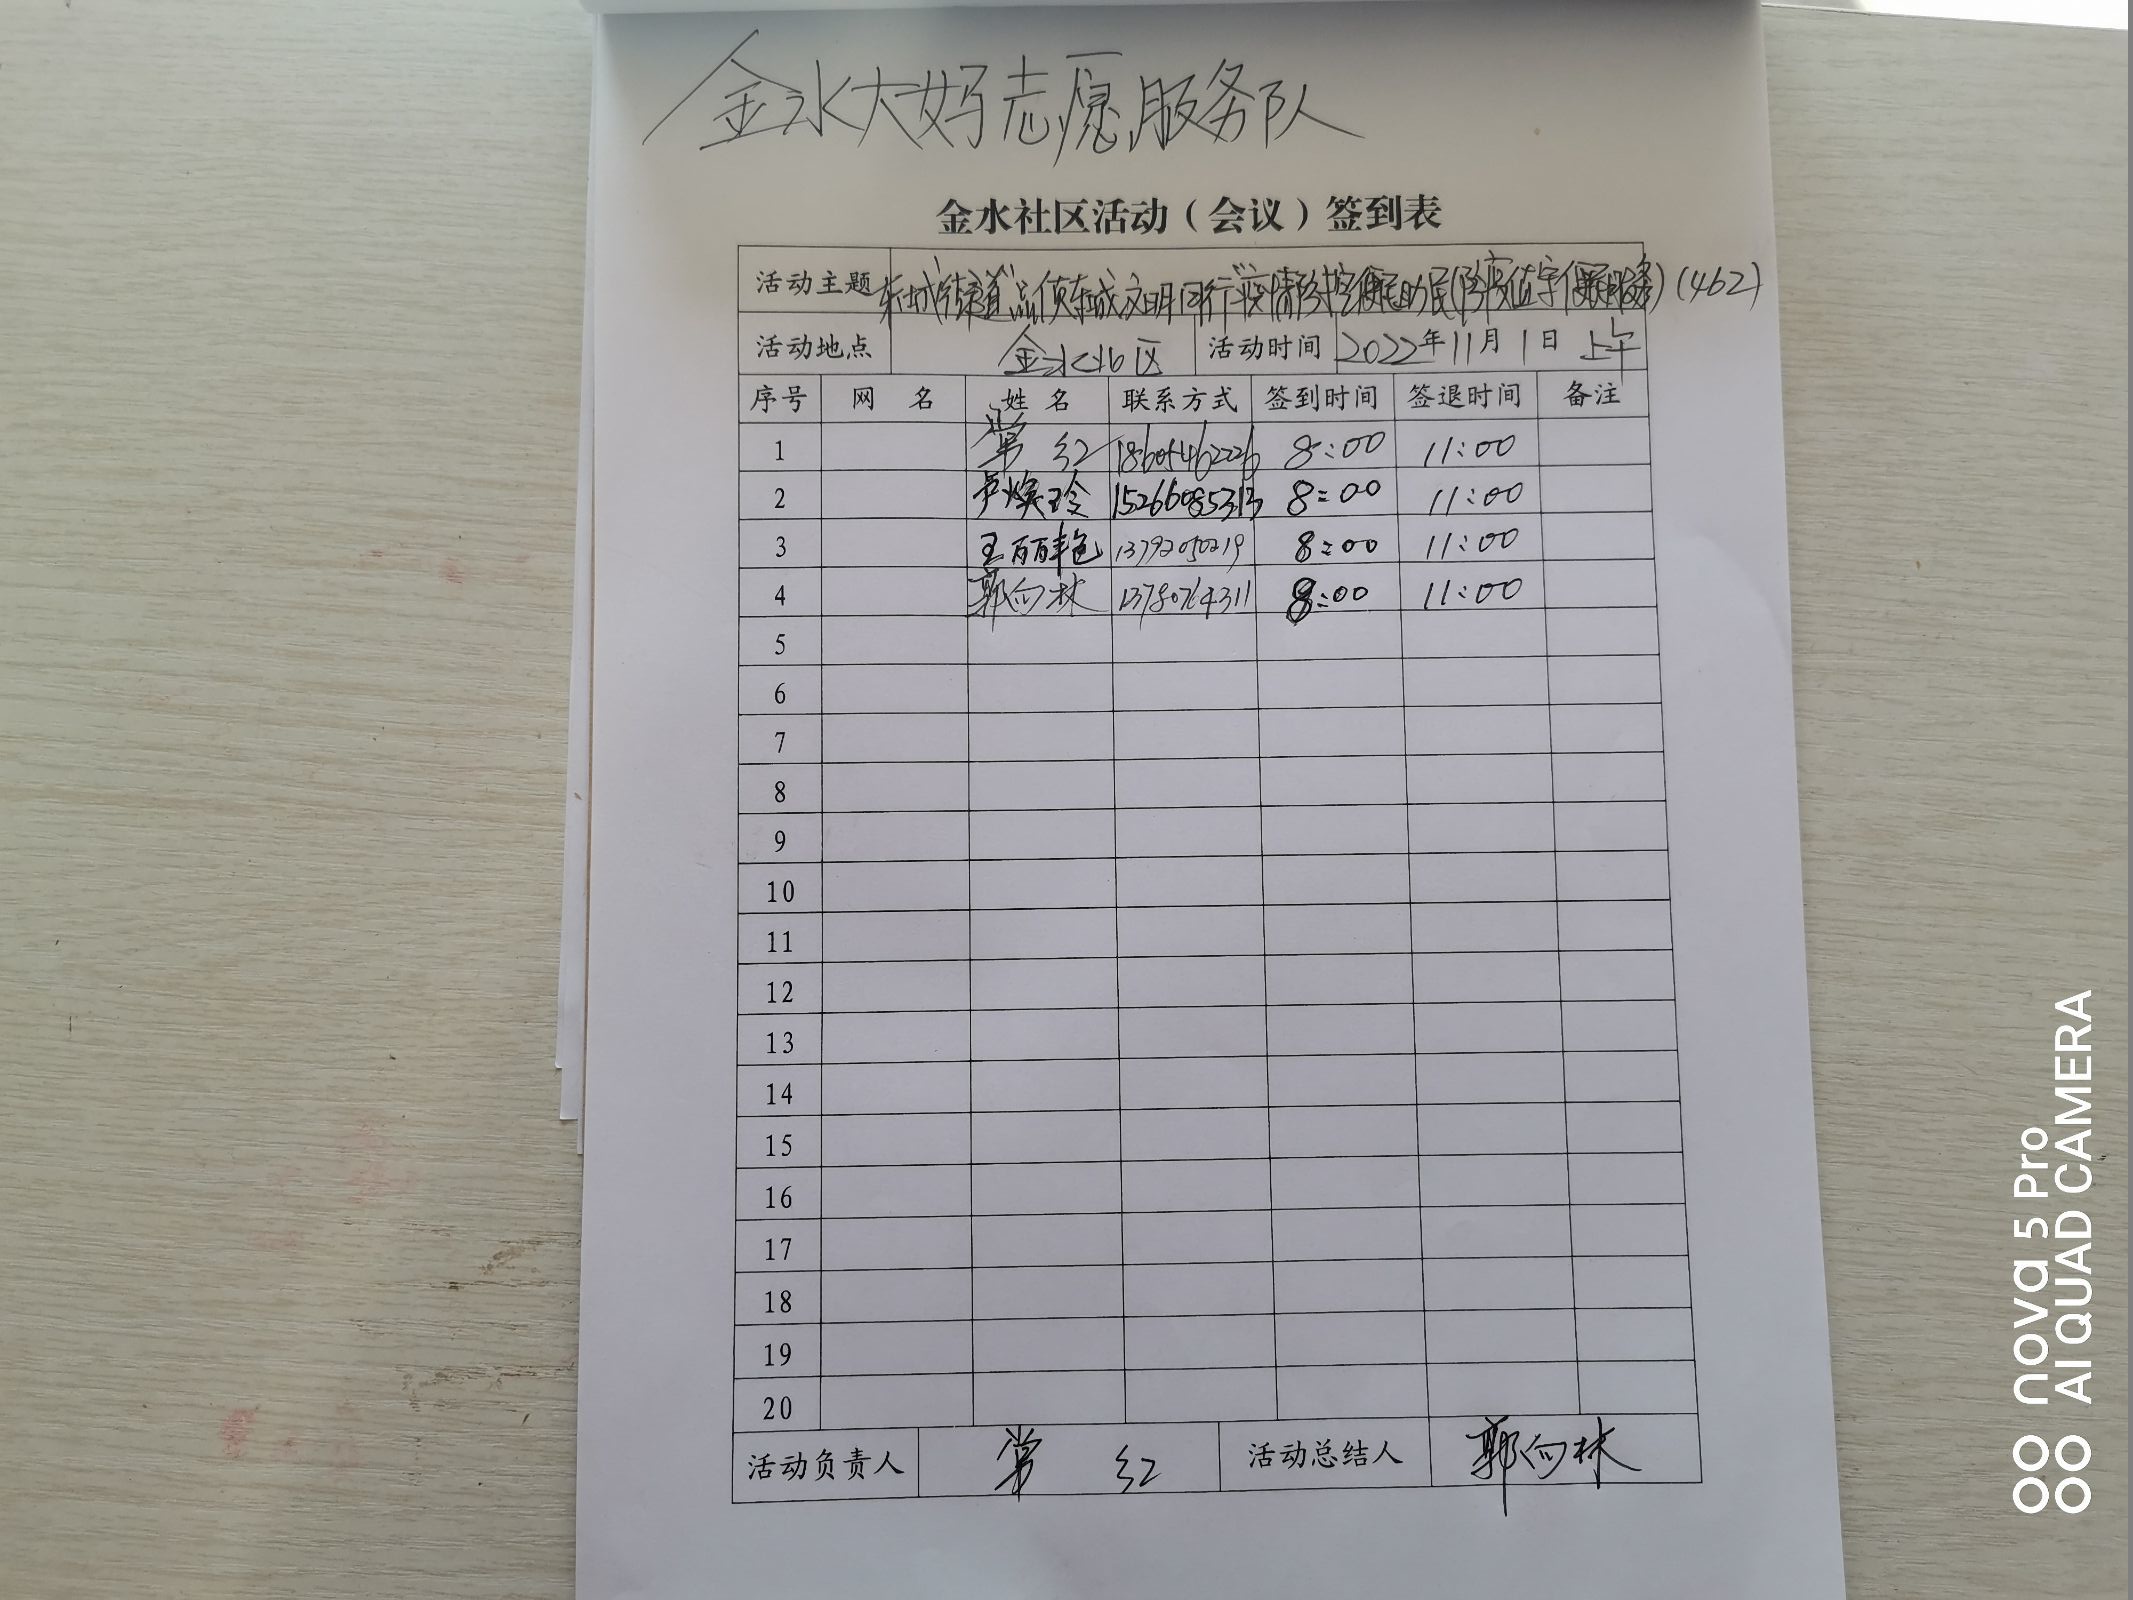 金水大妈志愿服务队
金水社区活动（会议）签到表
活动主题 东城街道"品质东城文明同行"疫情防控便民助民(防疫值守便民服务)(462)
活动地点 金水北区 活动时间 2022年11月1日 上午
序号 网 名 姓 名 联系方式 签到时间 签退时间 备注
1 常 红 18605462226 8:00 11:00
2 卢焕玲 15266085313 8:00 11:00
3 王丽艳 8:00 11:00
4 郭向林 13780764311 8:00 11:00
5
6
7
8
9
10
11
12
13
14
15
16
17
18
19
20
活动负责人 常 红 活动总结人 郭向林
nova 5 Pro
AI QUAD CAMERA